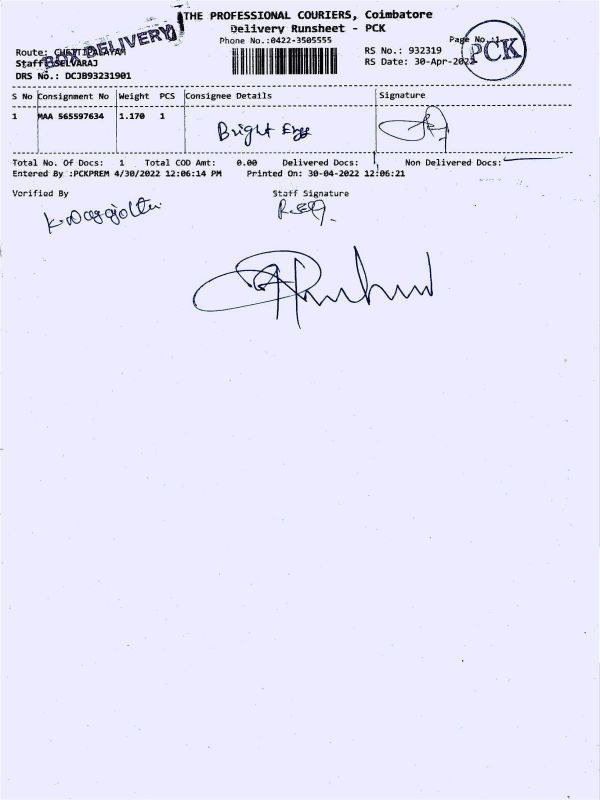 THE PROFESSIONAL COURIERS, Coimbatore
Delivery Runsheet - PCK
Phone No.:0422-3505555
Page No.:1
PCK
BOX DELIVERY
Route: CHETTIPALAYAM
Staff: SELVARAJ
DRS No.: DCJB93231901
RS No.: 932319
RS Date: 30-Apr-2022
S No Consignment No Weight PCS Consignee Details Signature
1 MAA 565597634 1.170 1 Bright Engg
Total No. Of Docs: 1 Total COD Amt: 0.00 Delivered Docs: 1 Non Delivered Docs:
Entered By :PCKPREM 4/30/2022 12:06:14 PM Printed On: 30-04-2022 12:06:21
Verified By Staff Signature